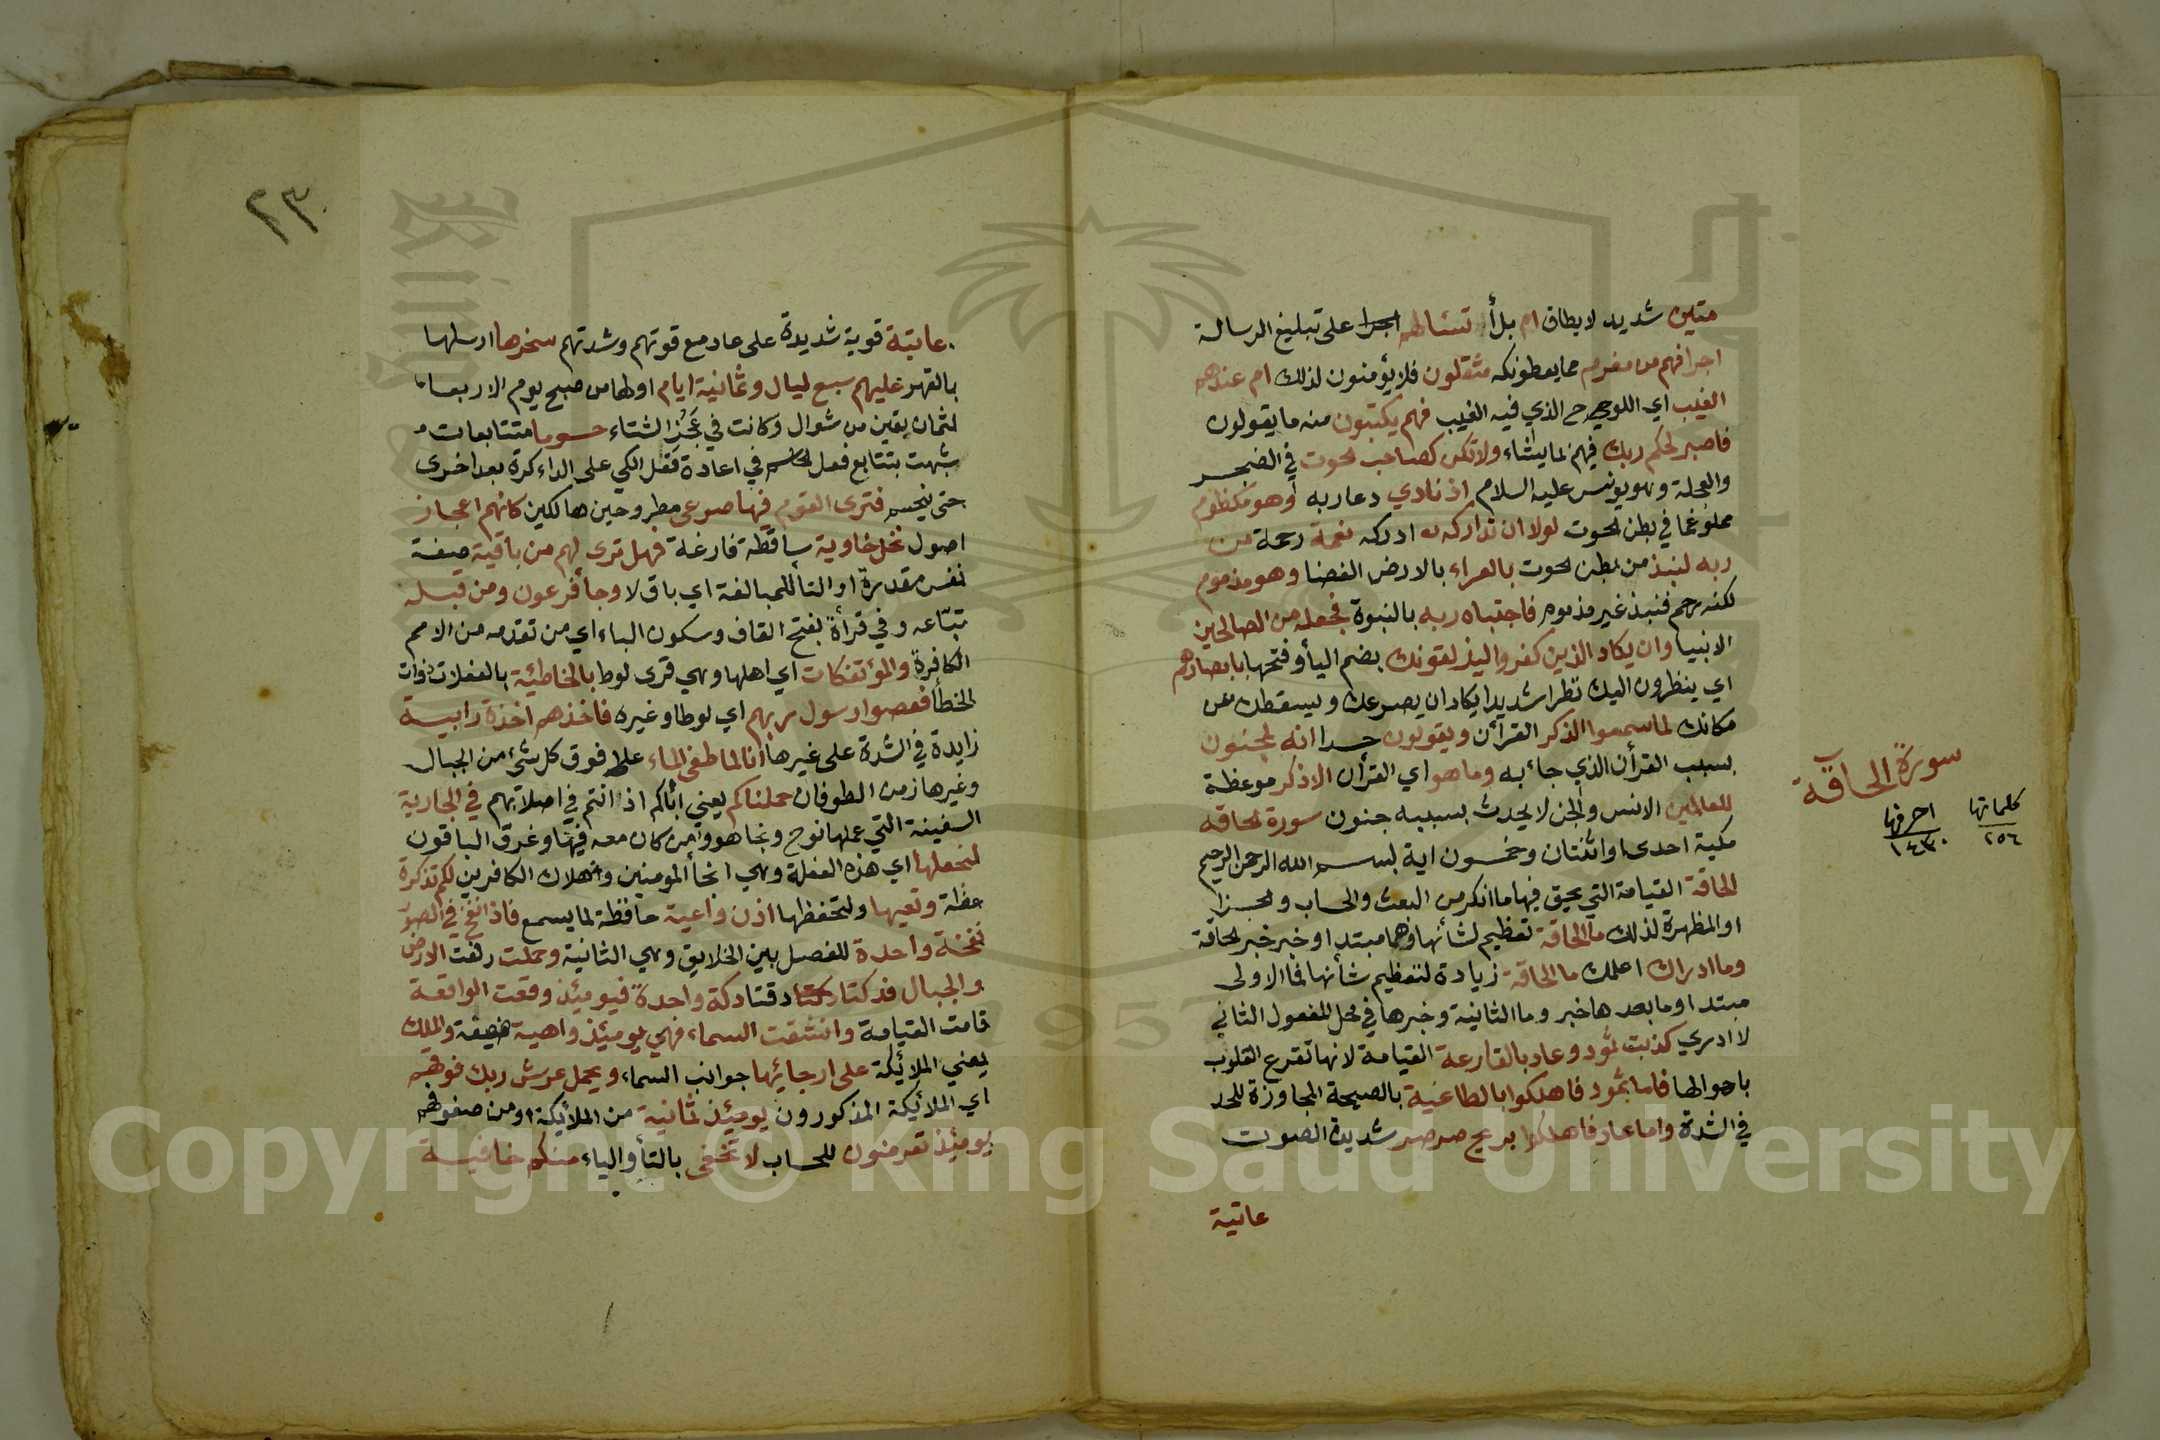 متين شديد لا يطاق ام بل أ تسئلهم اجرا على تبليغ الرسالة
اجرا فهم من مغرم مما يعطونكه مثقلون فلا يؤمنون لذلك ام عندهم
الغيب اي اللوح الذي فيه الغيب فهم يكتبون منه ما يقولون
فاصبر لحكم ربك فيهم لما يشاء ولا تكن كصاحب الحوت في الضجر
والعجلة وهو يونس عليه السلام اذ نادي دعا ربه وهو مكظوم
مملؤ غما في بطن الحوت لولا ان تداركه ادركه نعمة رحمة من
ربه لنبذ من بطن الحوت بالعراء بالارض الفضا وهو مذموم
لكنه رحم فنبذ غير مذموم فاجتباه ربه بالنبوة فجعله من الصالحين
الانبيا وان يكاد الذين كفروا ليزلقونك بضم اليأ وفتحها بابصارهم
اي ينظرون اليك نظرا شديدا يكاد ان يصرعك ويسقطك عن
مكانك لما سمعوا الذكر القرأن ويقولون حسدا انه لمجنون
بسبب القرأن الذي جأ به وما هو اي القرأن الا ذكر موعظة
للعالمين الانس والجن لا يحدث بسببه جنون سورة الحاقه
مكية احدى او اثنتان وخمسون اية بسم الله الرحمن الرحيم
الحاقة القيامة التي يحق فيها ما انكر من البعث والحساب والجزا
او المظهرة لذلك ما الحاقة تعظيم لشأنها وهما مبتدا وخبر خبر الحاقة
وما ادراك اعلمك ما الحاقة زيادة لتعظيم شأنها فما الاولى
مبتدا وما بعدها خبر وما الثانية وخبرها في محل المفعول الثاني
لادري كذبت ثمود وعاد بالقارعة القيامة لانها تقرع القلوب
باهوالها فاما ثمود فاهلكوا بالطاغية بالصيحة المجاوزة للحد
في الشدة واما عاد فاهلكوا بريح صرصر شديدة الصوت
عاتية
سورة الحاقة
كلماتها
٢٥٦
احرفها
١٤٣٠
٢٣٠
عاتية قوية شديدة على عاد مع قوتهم وشدتهم سخرها ارسلها
بالقهر عليهم سبع ليال وثمانية ايام اولها من صبح يوم الاربعا
لثمان بقين من شوال وكانت في عجز الشتاء حسوما متتابعات
شبهت بتتابع فعل الحاسم في اعادة الكي على الداء كرة بعد اخرى
حتى ينحسم فترى القوم فيها صرعى مطروحين هالكين كانهم اعجاز
اصول نخل خاوية ساقطة فارغة فهل ترى لهم من باقية صفة
نفس مقدرة او التأ للمبالغة اي باق لا وجأ فرعون ومن قبله
تبّاعه وفي قرأة بفتح القاف وسكون الباء اي من تقدمه من الامم
الكافرة والمؤتفكات اي اهلها وهي قرى لوط بالخاطئة بالفعلات ذوات
الخطأ فعصوا رسول ربهم اي لوطا وغيره فاخذهم اخذة رابية
زايدة في الشدة على غيرها انا لما طغى الماء علا فوق كل شئ من الجبال
وغيرها زمن الطوفان حملناكم يعني ابأكم اذ انتم في اصلابهم في الجارية
السفينة التي عملها نوح ونجا هو ومن كان معه فيها وغرق الباقون
لنجعلها اي هذه الفعلة وهي انجأ المومنين واهلاك الكافرين لكم تذكرة
عظة وتعيها ولتحفظها اذن واعية حافظة لما يسمع فاذا نفخ في الصور
نفخة واحدة للفصل بين الخلايق وهي الثانية وحملت رفعت الارض
والجبال فدكتا دقتا دكة واحدة فيومئذ وقعت الواقعة
قامت القيامة وانشقت السماء فهي يومئذ واهية ضعيفة والملك
يعني الملائكة على ارجائها جوانب السماء ويحمل عرش ربك فوقهم
اي الملائكة المذكورون يومئذ ثمانية من الملائكة او من صفوفهم
يومئذ تعرضون للحساب لا تخفى بالتأ والياء منكم خافية
Copyright © King Saud University
1957